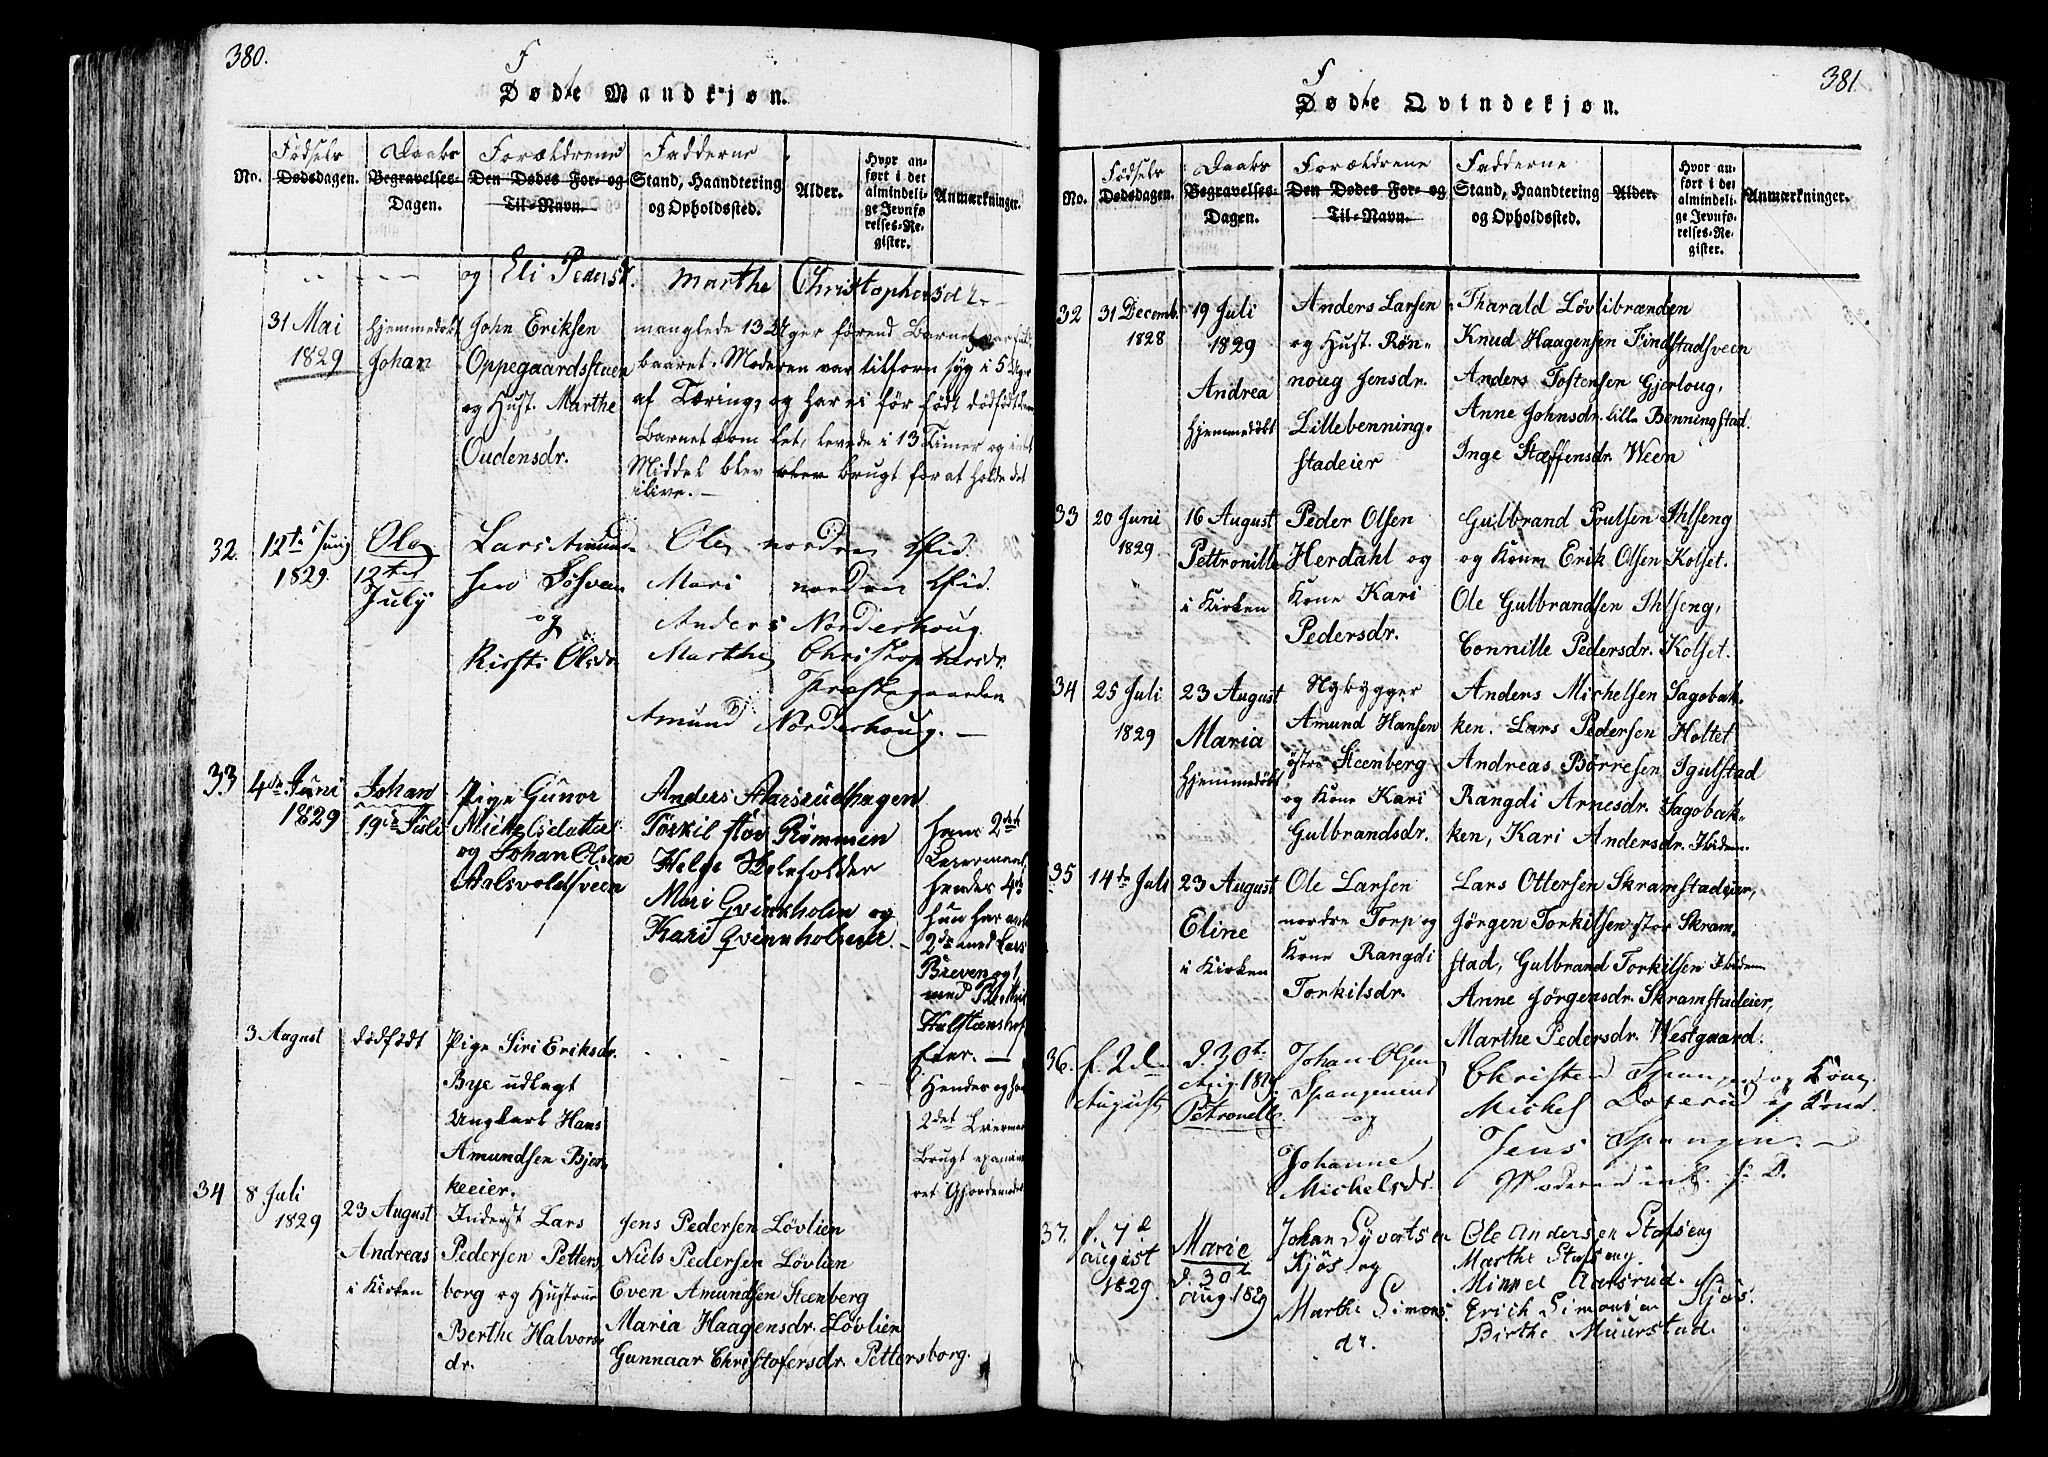 380.
F
Døde Mandkjøn.
No.
Fødsels
Dødsdagen.
Daabs
Begravelses-
Dagen.
Forældrene
Den Dødes For- og
Til-Navn.
Fadderne
Stand, Haandtering
og Opholdssted.
Alder.
Hvor an-
ført i det
almindeli-
ge Jevnfø-
relses-Re-
gister.
Anmærkninger.
og Eli Pedersd. Marthe Christophersdr.
31 Mai
1829
hjemmedøbt
Johan
John Eriksen
Oppegaardsstuen
og Hust. Marthe
Oudensdr.
manglede 13 Uger førend Barnet var ful-
baaret. Moderen var tilforn syg i 5 Uger
af Tæring, og har ei før født dødfødt
Barnet kom let, levede i 13 Timer og intet
Middel blev blev brugt for at holde det
ilive. —
32.
12te Juny
1829.
Ole
12te
July
Lars Amund-
sen
og
Kirsti Olsdr
Ole norden
Mari norden
Anders Norderhoug
Marthe Christophersdr.
Præstegaarden
Amund Norderhoug. —
33
4de Juni
1829
Johan
19de Juli
Pige Gunor
Mickelsdatter
og Johan Olsen
Aalsvoldsveen
Anders Aarsrudhagen
Torkil støv Rømmen
Helge
Mari Qvinnholen og
Kari Qvinnholseier. —
hans 2det
Leiermaal
hendes 4de
hun har
2de med Lars
Breven og 1
med
eier. —
3 August
dødfødt
Pige Siri Eriksdr.
Bye udlagt
Ungkarl Hans
Amundsen Bjer-
keeier.
Hendes og hans
2det Leierm
brugt
34
8 Juli
1829
23 August
Andreas
i Kirken
Inderst Lars
Pedersen Petters
borg og Hustrue
Berthe Halvors-
dr.
Jens Pedersen Løvlien
Niels Pedersen Løvlien
Even Amundsen Steenberg
Maria Haagensdr. Løvlien
Gunnaar Christofersdr. Pettersborg.
381.
F
Døde Qvindekjøn.
No.
Fødsels
Dødsdagen.
Daabs
Begravelses-
Dagen.
Forældrene
Den Dødes For- og
Til-Navn.
Fadderne
Stand, Haandtering
og Opholdssted.
Alder.
Hvor an-
ført i det
almindeli-
ge Jevnfø-
relses-Re-
gister.
Anmærkninger.
32
31 Decemb.
1828
19 Juli
1829
Andrea
hjemmedøbt
Anders Larsen
og Hust. Røn-
noug Jensdr.
Lillebenning-
stadeier
Tharald Løvlibranden
Knud Haagensen Findstadsveen
Anders Tostensen Gjerloug,
Anne Johnsdr. lille Benningstad.
Inge Steffensdr. Ween
33
20 Juni
1829
16 August
Pettronille
i Kirken
Peder Olsen
Herdahl og
Kone Kari
Pedersdr.
Gulbrand Poulsen Ihlseng
og Kone, Erik Olsen Kolset.
Ole Gulbrandsen Ihlseng,
Connille Pedersdr. Kolset.
34
25 Juli
1829
23 August
Maria
hjemmedøbt
Nybygger
Amund Hansen
østre Steenberg
og Kone Kari
Gulbrandsdr.
Anders Michelsen Sagobak-
ken. Lars Pedersen Holtet
Andreas Børresen Igulstad
Rangdi Arnesdr. Sagobak-
ken, Kari Andersdr. Ibidem.
35
14de Juli
23 August
Eline
i Kirken
Ole Larsen
nordre Torp og
Kone Rangdi
Torkilsdr.
Lars Ottersen Skramstadeier,
Jørgen Torkilsen stor Skram-
stad, Gulbrand Torkilsen Ibidem
Anne Jørgensdr. Skramstadeier,
Marthe Pedersdr. Westgaard.
36.
f. 2den
August
d. 30te
Aug. 1829
Petronelle
Johan Olsen
Spangenens
og
Johanne
Michelsdr.
Christen Spangen og Kone
Michel og Kone.
Jens Spangen. —
Moderen int. f. D.
37.
f. 7d
august
1829.
Marie
d. 30d
aug. 1829
Johan Syvertsen
Kjøs og
Marthe Simons
dr.
Ole Andersen Stafseng
Marthe Stafseng
Mikkel Aarsrud.
Erich Simonsen Kjøs.
Birthe Muurstad.